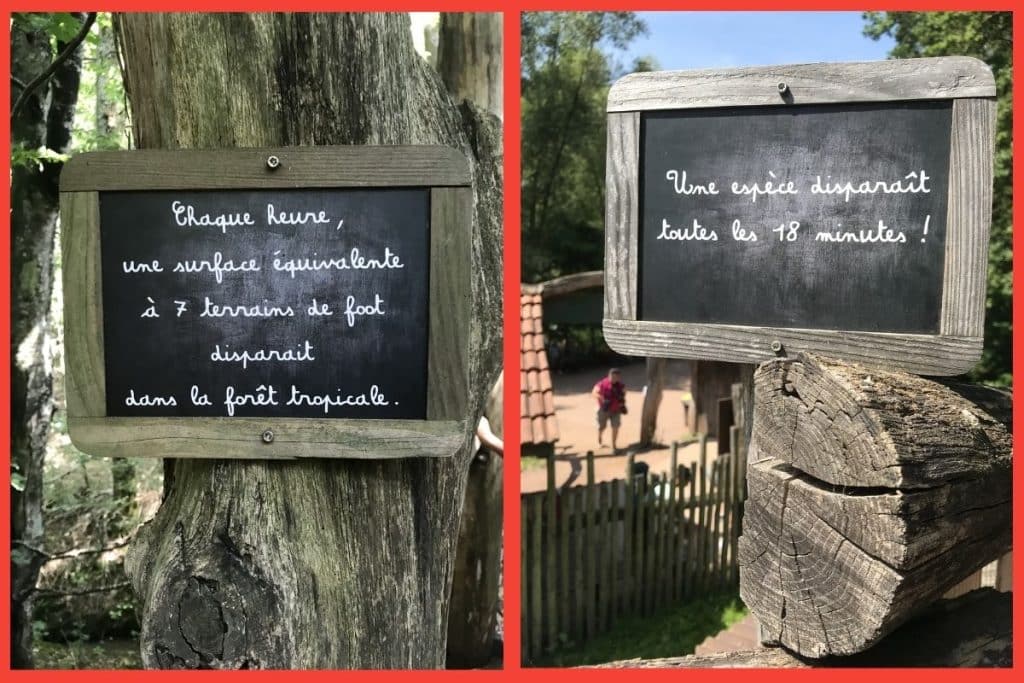 Chaque heure,
une surface équivalente
à 7 terrains de foot
disparait
dans la forêt tropicale.
Une espèce disparaît
toutes les 18 minutes !